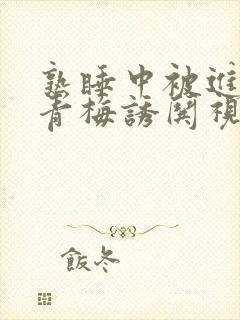 熟睡中被進
青梅誘関視
飯冬